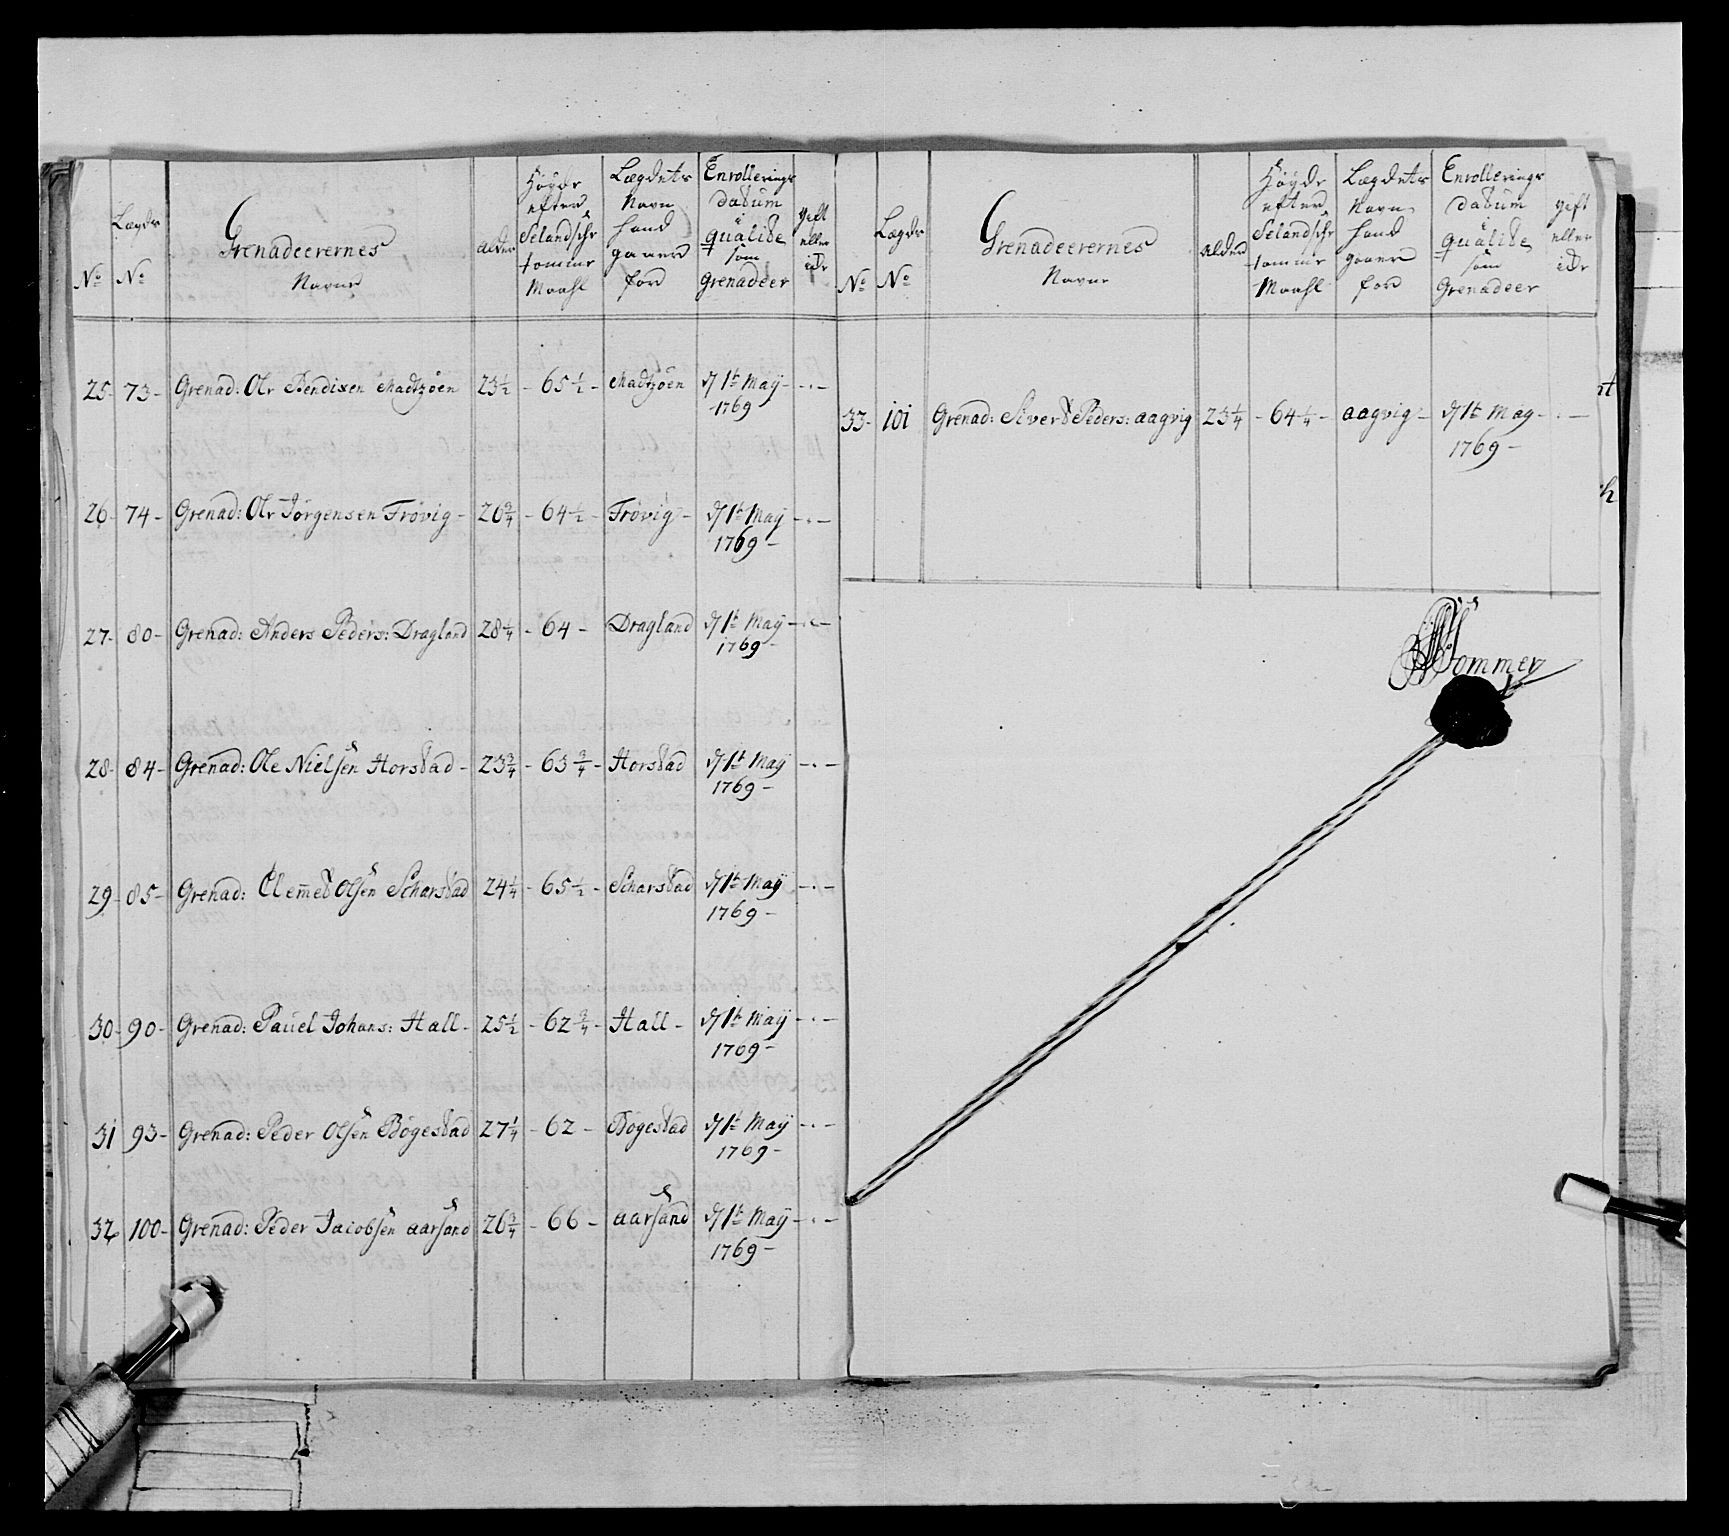 No
Lægds No
Grenadeerernes Navne
alder
Höyde efter Selandsche tomme Maahl
Lægdets Navn hand gaaer for
Enrollerings datum i qualite som Grenadeer
gift eller ei
25- 73- Grenad: Ole Bendixen Madtzöen 23½ - 65½ - Madtzöen d 1te Maÿ - . -
1769
26- 74- Grenad: Ole Jörgensen Frövig - 26¾ - 64½ - Frövig - d 1te Maÿ - . -
1769 -
27- 80- Grenad: Anders Peders: Dragland 28¼ - 64 - Dragland d 1te Maÿ - . -
1769 -
28- 84- Grenad: Ole Nielsen Horstad - 23¾ - 63¾ - Horstad d 1te Maÿ - . -
1769 -
29- 85- Grenad: Clemet Olsen Scharstad 24¼ - 65½ - Scharstad d 1te Maÿ - . -
1769 -
30- 90- Grenad: Pauel Johans: Hall - 25½ - 62¾ - Hall - d 1te Maÿ - . -
1769 -
31 93- Grenad: Peder Olsen Bögestad 27¼ - 62 - Bögestad d 1te Maÿ - . -
1769 -
32 100- Grenad: Peder Jacobsen aarsand 26¾ - 66 - aarsand d 1te Maÿ - . -
1769 -
No
Lægds No
Grenadeerernes Navne
alder
Höyde efter Selandsche tomme Maahl
Lægdets Navn hand gaaer for
Enrollerings datum i qualite som Grenadeer
gift eller ei
33- 101 Grenad: Sivert Peders: aagvig 23¼ - 64¼ - aagvig - d 1te Maÿ - . -
1769 -